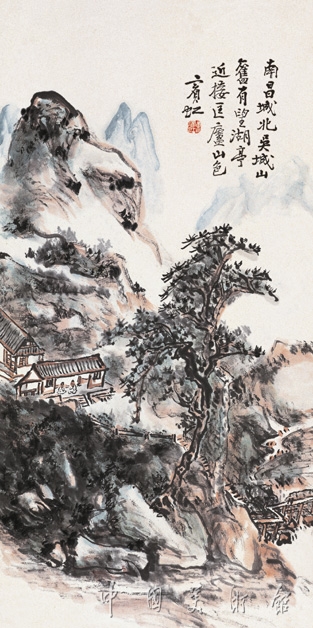 南昌城北吳城山
舊有望湖亭
近接匡廬山色
賓虹
中国美术馆